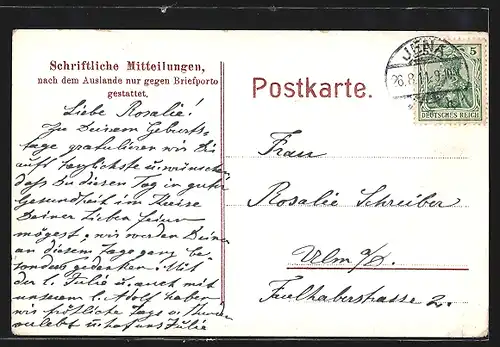 Schriftliche Mitteilungen,
nach dem Auslande nur gegen Briefporto
gestattet.
Postkarte.
JENA
26.8.11.9-10V.
5
DEUTSCHES REICH
Liebe Rosalie!
Zu Deinem Geburts-
tage gratulieren wir Dir
aufs herzlichste u. wünschen
daß Du diesen Tag in guter
Gesundheit im Kreise
Deiner Lieben feiern
mögest, wir werden Deiner
an diesem Tage ganz be-
sonders gedenken. Mit
der l. Julie u. auch mit
unserem l. Adolf haben
wir fröhliche Tage
verlebt u. hat uns Julie
Frau
Rosalie Schreiber
Ulm a/D.
Faulhaberstrasse 2.